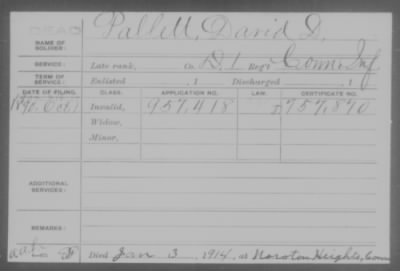 DEAD
NAME OF SOLDIER: Pallett, David D.
SERVICE: Late rank, Co. D. 1 Reg't Conn. Inf.
TERM OF SERVICE: Enlisted , 1 Discharged , 1
DATE OF FILING. CLASS. APPLICATION NO. LAW. CERTIFICATE NO.
1890, Oct 1 Invalid, 957,418 757,870
Widow,
Minor,
ADDITIONAL SERVICES:
REMARKS:
Died Jan 3, 1914, at Noroton Heights, Conn